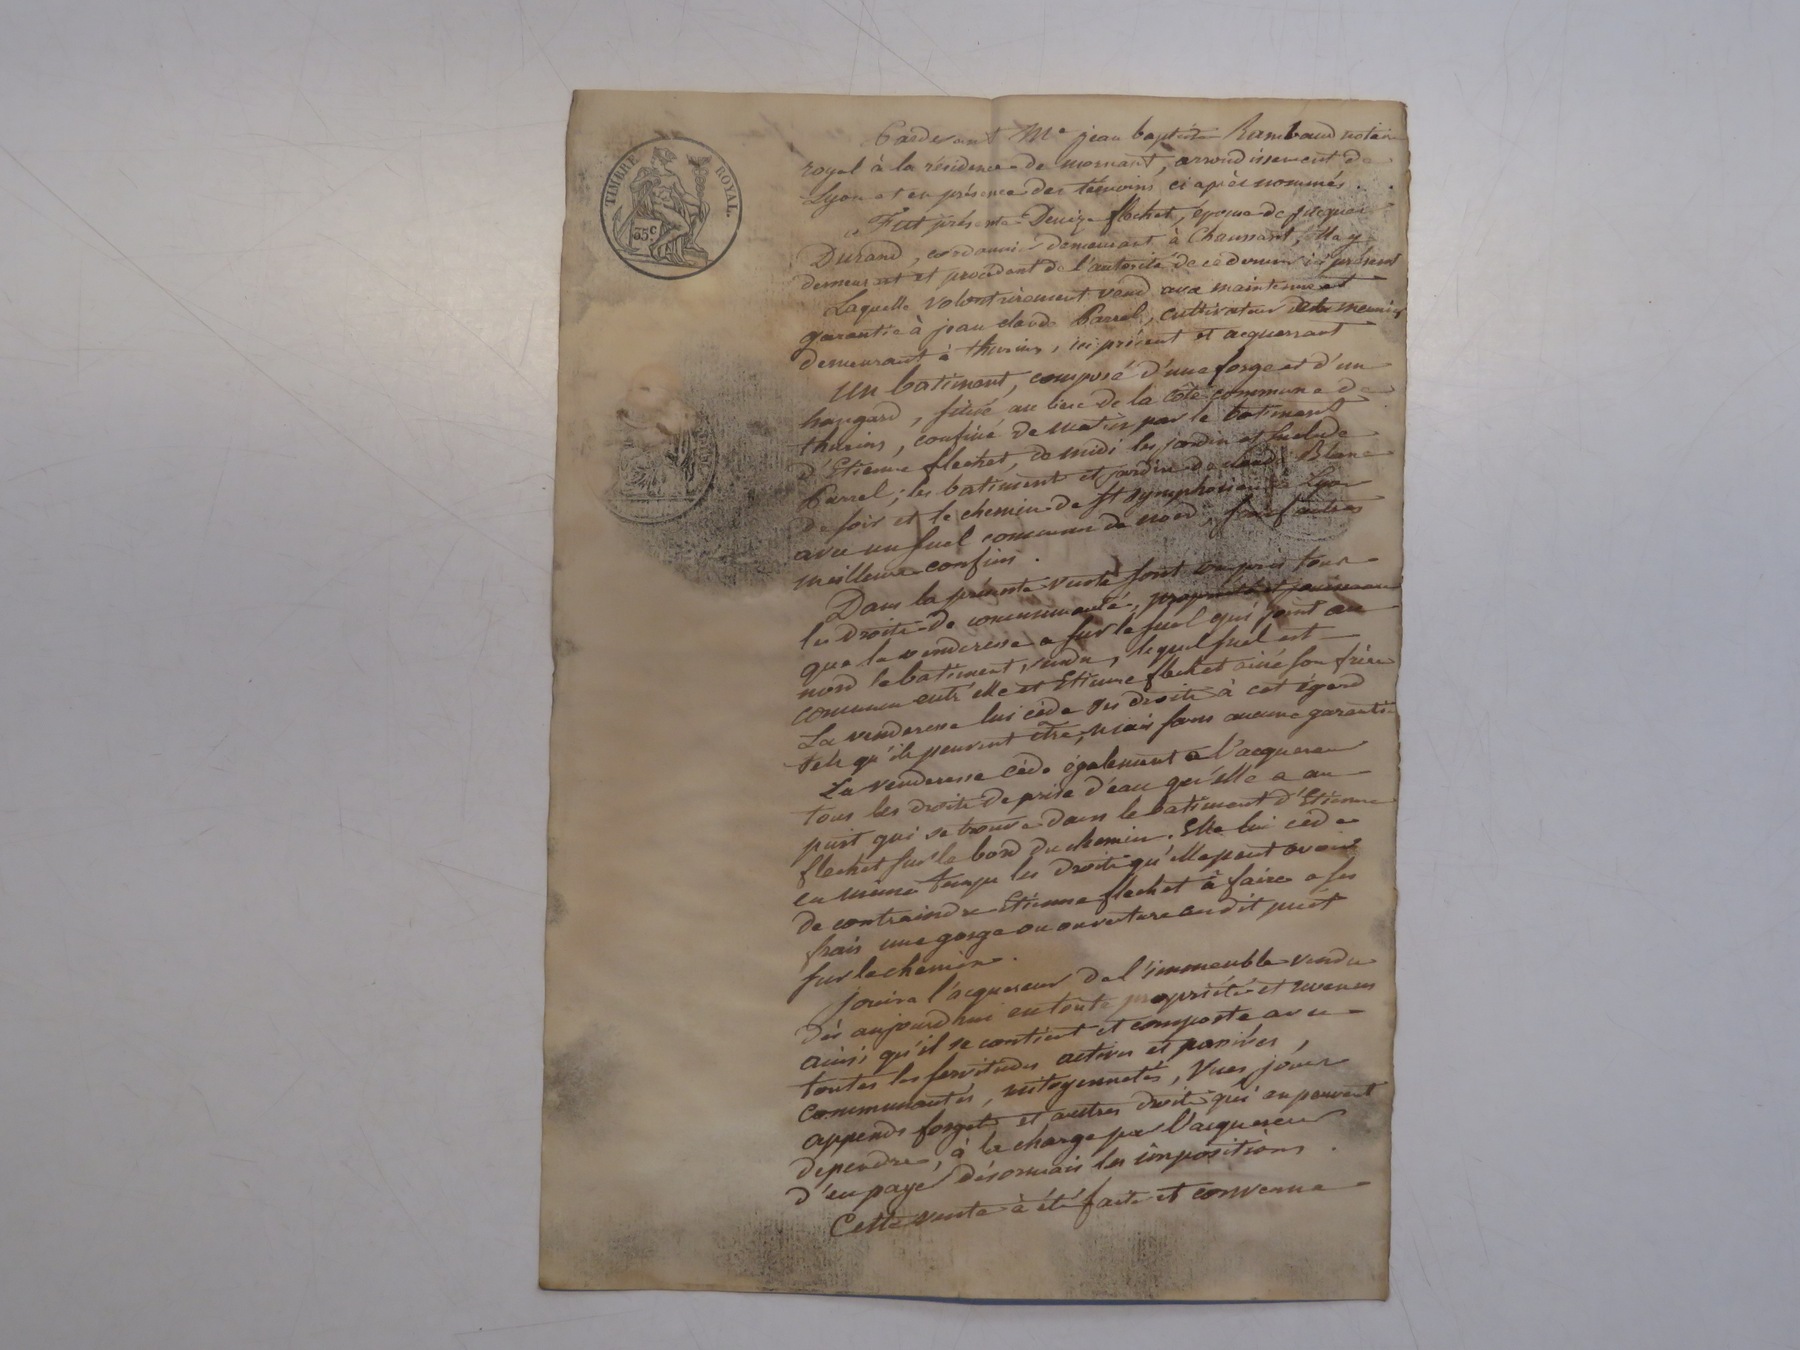 TIMBRE ROYAL.
35c
Pardevant Me jean baptiste Rambaud notaire
royal à la résidence de mornant, arrondissement de
Lyon et en présence des témoins ci après nommés.
Fut présente Denize flechet, épouse de jacques
Durand, cordonnier demeurant à Chaussant, elle y
demeurant et procédant de l'autorité de ce dernier ici présent
Laquelle volontairement vend avec maintenue et
garantie à jean claude Parrel, cultivateur
demeurant à thurins, ici présent et acquerrant
Un batiment, composé d'une forge et d'un
hangard, situé au lieu de la côte commune de
thurins, confiné de matin par le batiment
d'Etienne flechet, de midi les jardin et suel de
Parrel; les batiment et jardin de claude Blanc
de soir et le chemin de St symphorien à Lyon
avec un suel commun de nord, sauf autres
meilleurs confins.
Dans la présente vente sont compris tous
les droits de communauté, propriété et jouissance
que la venderesse a sur le suel qui joint au
nord le batiment vendu, lequel suel est
commun entr'elle et Etienne flechet ainé son frère
La venderesse lui cède ses droits à cet égard
tels qu'ils peuvent être, mais sans aucune garantie
La venderesse cède également à l'acquereur
tous les droits de prise d'eau qu'elle a au
puit qui se trouve dans le batiment d'Etienne
flechet sur le bord du chemin. Elle lui cède
en même temps les droits qu'elle peut avoir
de contraindre Etienne flechet à faire a ses
frais une gorge ou ouverture audit puit
sur le chemin.
jouira l'acquereur de l'immeuble vendu
dès aujourd'hui en toute propriété et revenus
ainsi qu'il se contient et comporte avec
toutes les servitudes actives et passives,
communautés, mitoyennetés, Vues, jours
appends forgets et autres droits qui en peuvent
dependre, à la charge par l'acquereur
d'en payer désormais les impositions.
Cette vente à été faite et convenue